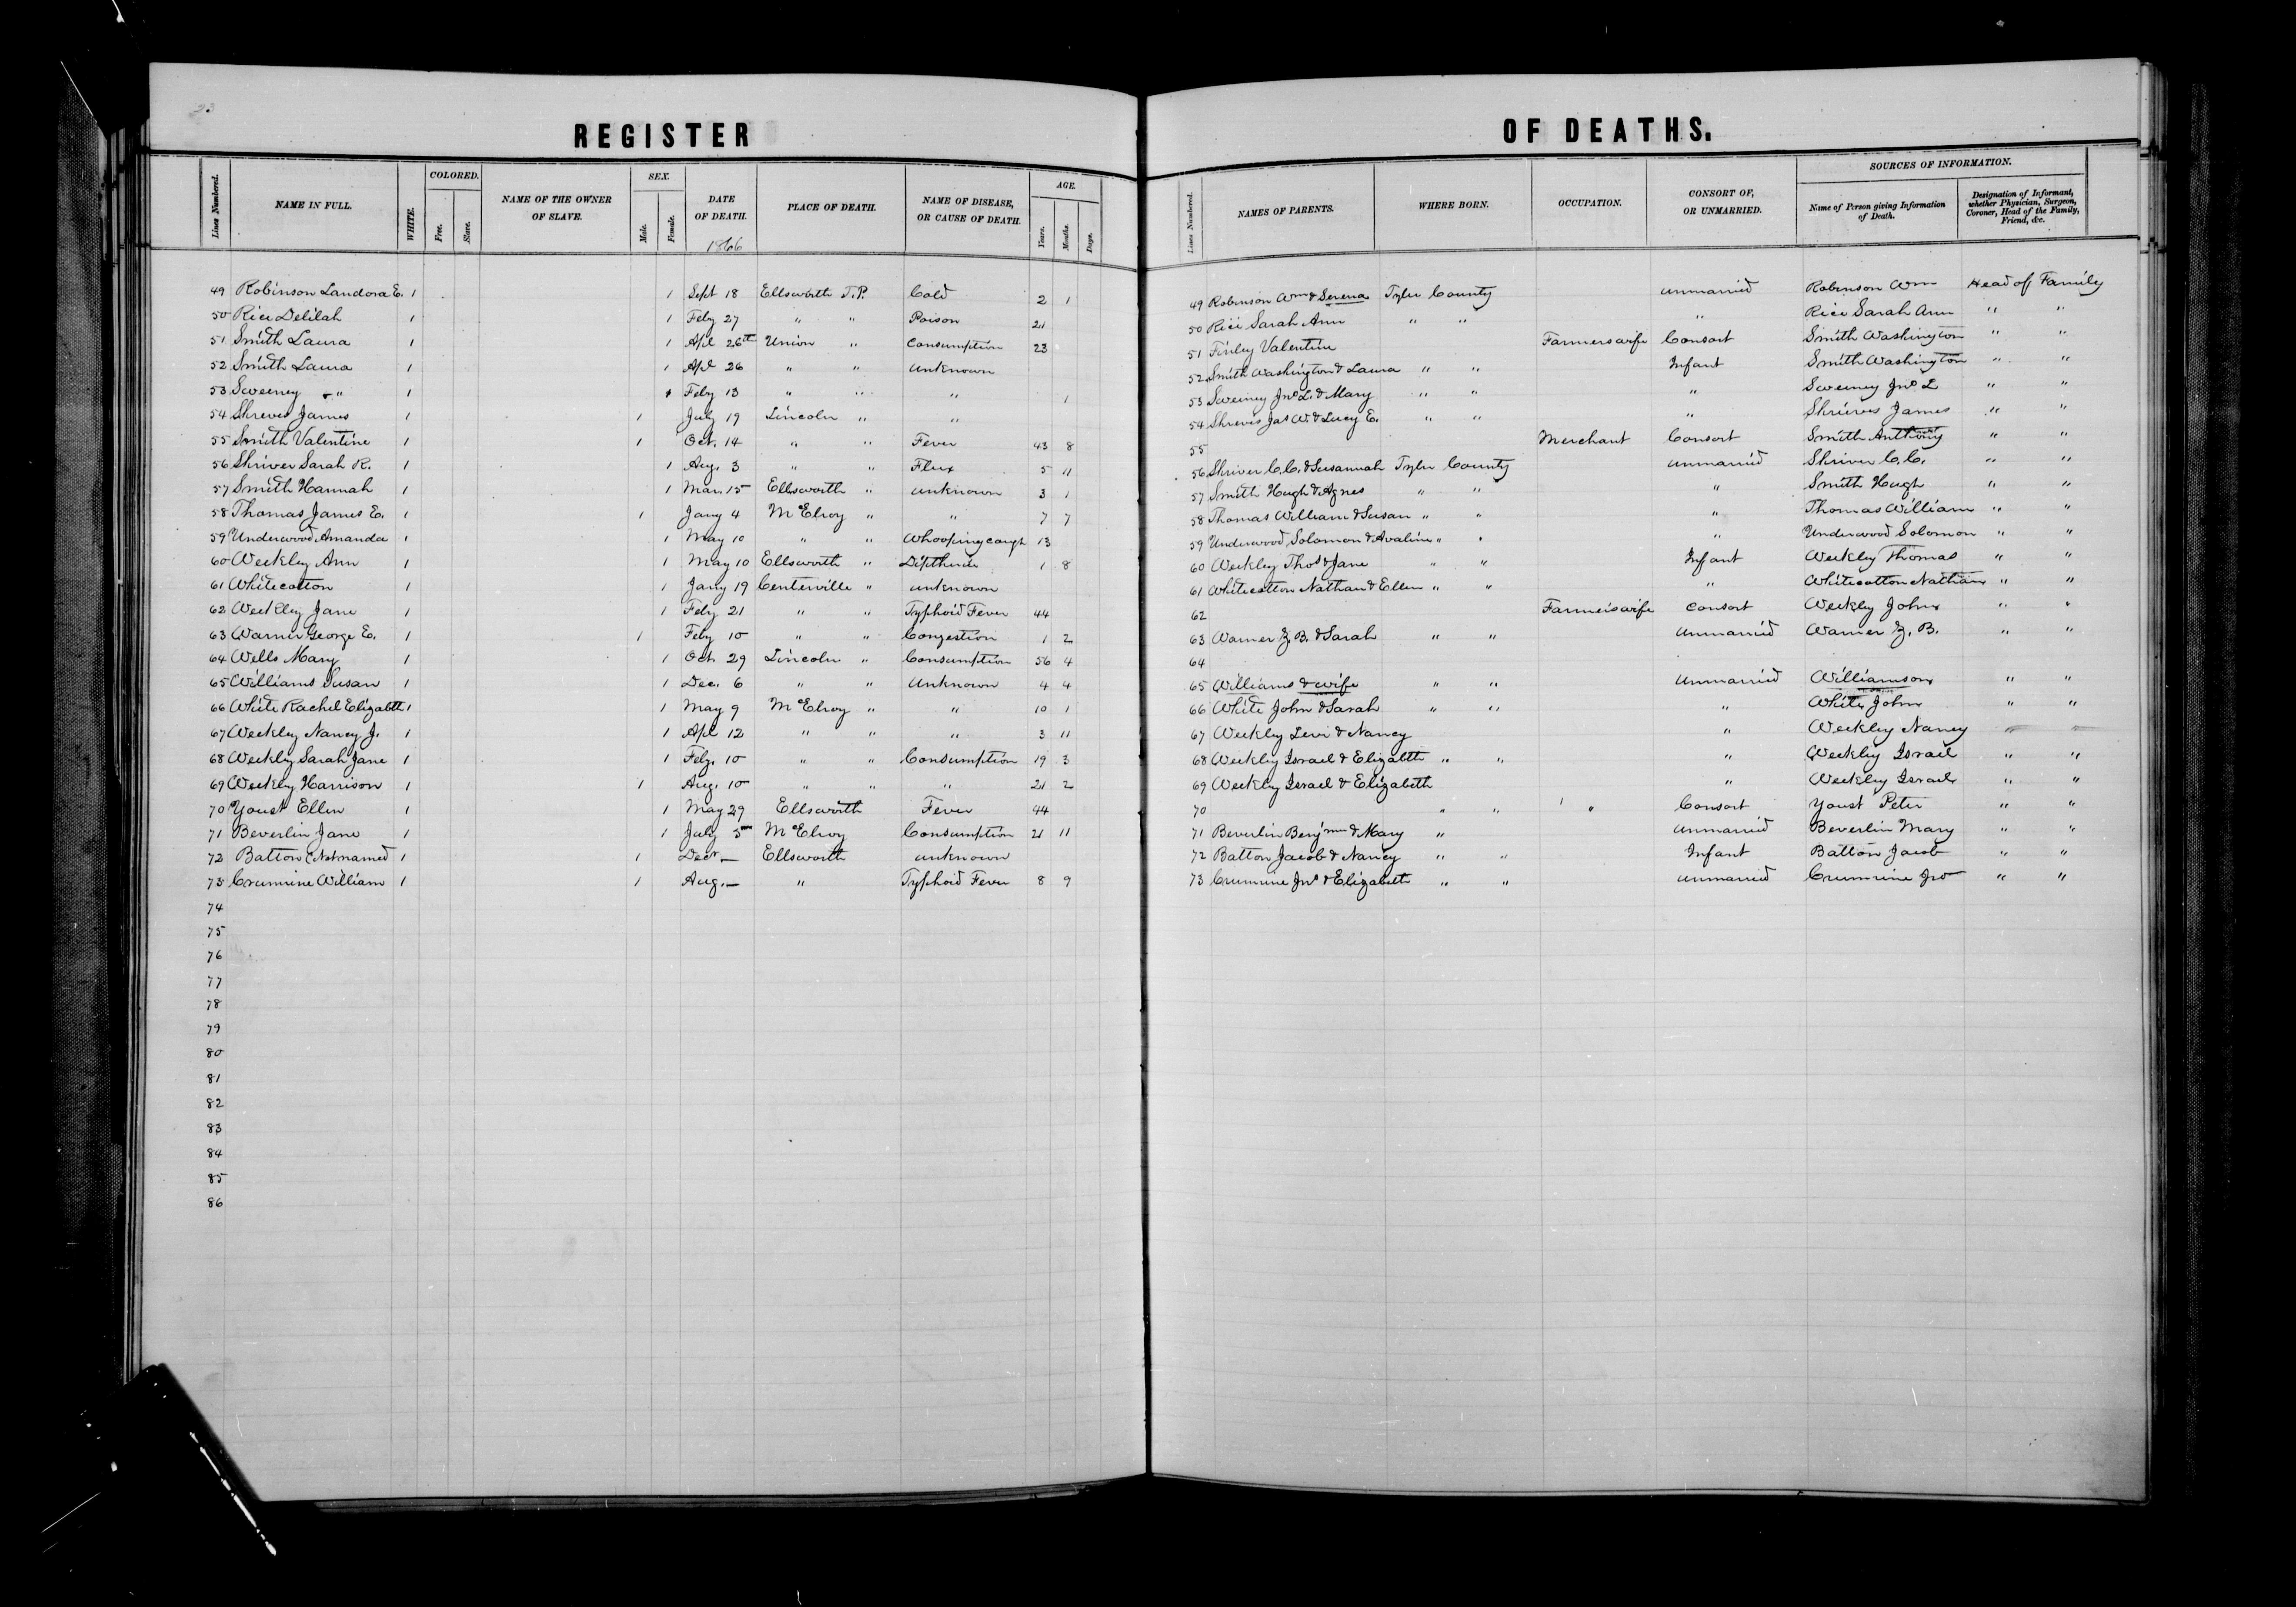 23
REGISTER OF DEATHS.
Lines Numbered. NAME IN FULL. WHITE. COLORED. Free. Slave. NAME OF THE OWNER OF SLAVE. SEX. Male. Female. DATE OF DEATH. 1866 PLACE OF DEATH. NAME OF DISEASE, OR CAUSE OF DEATH. AGE. Years. Months. Days.
49 Robinson Landora E. 1 1 Sept 18 Ellsworth T.P. Cold 2 1
50 Rice Delilah 1 1 Feby 27 " " Poison 21
51 Smith Laura 1 1 Apl 26th Union " Consumption 23
52 Smith Laura 1 1 Apl 26 " " Unknown
53 Sweeney " 1 1 Feby 13 " " " 1
54 Shreves James 1 1 July 19 Lincoln " "
55 Smith Valentine 1 1 Oct. 14 " " Fever 43 8
56 Shriver Sarah R. 1 1 Aug. 3 " " Flux 5 11
57 Smith Hannah 1 1 Mar. 15 Ellsworth " unknown 3 1
58 Thomas James E. 1 1 Jany 4 McElroy " " 7 7
59 Underwood Amanda 1 1 May 10 " " Whooping cough 13
60 Weekley Ann 1 1 May 10 Ellsworth " Diptheria 1 8
61 Whitecotton 1 1 Jany 19 Centerville " unknown
62 Weekley Jane 1 1 Feby 21 " " Typhoid Fever 44
63 Warner George E. 1 1 Feby 10 " " Congestion 1 2
64 Wells Mary 1 1 Oct. 29 Lincoln " Consumption 56 4
65 Williams Susan 1 1 Dec. 6 " " Unknown 4 4
66 White Rachel Elizabeth 1 1 May 9 McElroy " " 10 1
67 Weekley Nancy J. 1 1 Apl 12 " " " 3 11
68 Weekley Sarah Jane 1 1 Feby. 10 " " Consumption 19 3
69 Weekley Harrison 1 1 Aug. 10 " " " 21 2
70 Youst Ellen 1 1 May 29 Ellsworth Fever 44
71 Beverlin Jane 1 1 July 5 McElroy Consumption 21 11
72 Batton (Not named 1 1 Decr — Ellsworth unknown
73 Crumrine William 1 1 Aug. — " Typhoid Fever 8 9
74
75
76
77
78
79
80
81
82
83
84
85
86
Lines Numbered. NAMES OF PARENTS. WHERE BORN. OCCUPATION. CONSORT OF, OR UNMARRIED. SOURCES OF INFORMATION. Name of Person giving Information of Death. Designation of Informant, whether Physician, Surgeon, Coroner, Head of the Family, Friend, &c.
49 Robinson Wm & Serena Tyler County unmarried Robinson Wm Head of Family
50 Rice Sarah Ann " " " Rice Sarah Ann " "
51 Finley Valentine Farmers wife Consort Smith Washington " "
52 Smith Washington & Laura " " Infant Smith Washington " "
53 Sweeney Jno L. & Mary " " " Sweeney Jno L " "
54 Shreves Jas W. & Lucy E. " " " Shrieves James " "
55 Merchant Consort Smith Anthony " "
56 Shriver C.C. & Susannah Tyler County unmarried Shriver C.C. " "
57 Smith Hugh & Agnes " " " Smith Hugh " "
58 Thomas William & Susan " " " Thomas William " "
59 Underwood Solomon & Avaline " " " Underwood Solomon " "
60 Weekley Thos & Jane " " Infant Weekley Thomas " "
61 Whitecotton Nathan & Ellen " " " Whitecotton Nathan " "
62 Farmers wife Consort Weekley John " "
63 Warner Z. B. & Sarah " " Unmarried Warner Z. B. " "
64
65 Williams & wife " " Unmarried Williamson " "
66 White John & Sarah " " " White John " "
67 Weekley Levi & Nancy " Weekley Nancy " "
68 Weekley Israel & Elizabeth " " " Weekley Israel " "
69 Weekley Israel & Elizabeth " Weekley Israel " "
70 " " " " Consort Youst Peter " "
71 Beverlin Benjmn & Mary " unmarried Beverlin Mary " "
72 Batton Jacob & Nancy " " Infant Batton Jacob " "
73 Crumrine Jno & Elizabeth " " unmarried Crumrine Jno " "